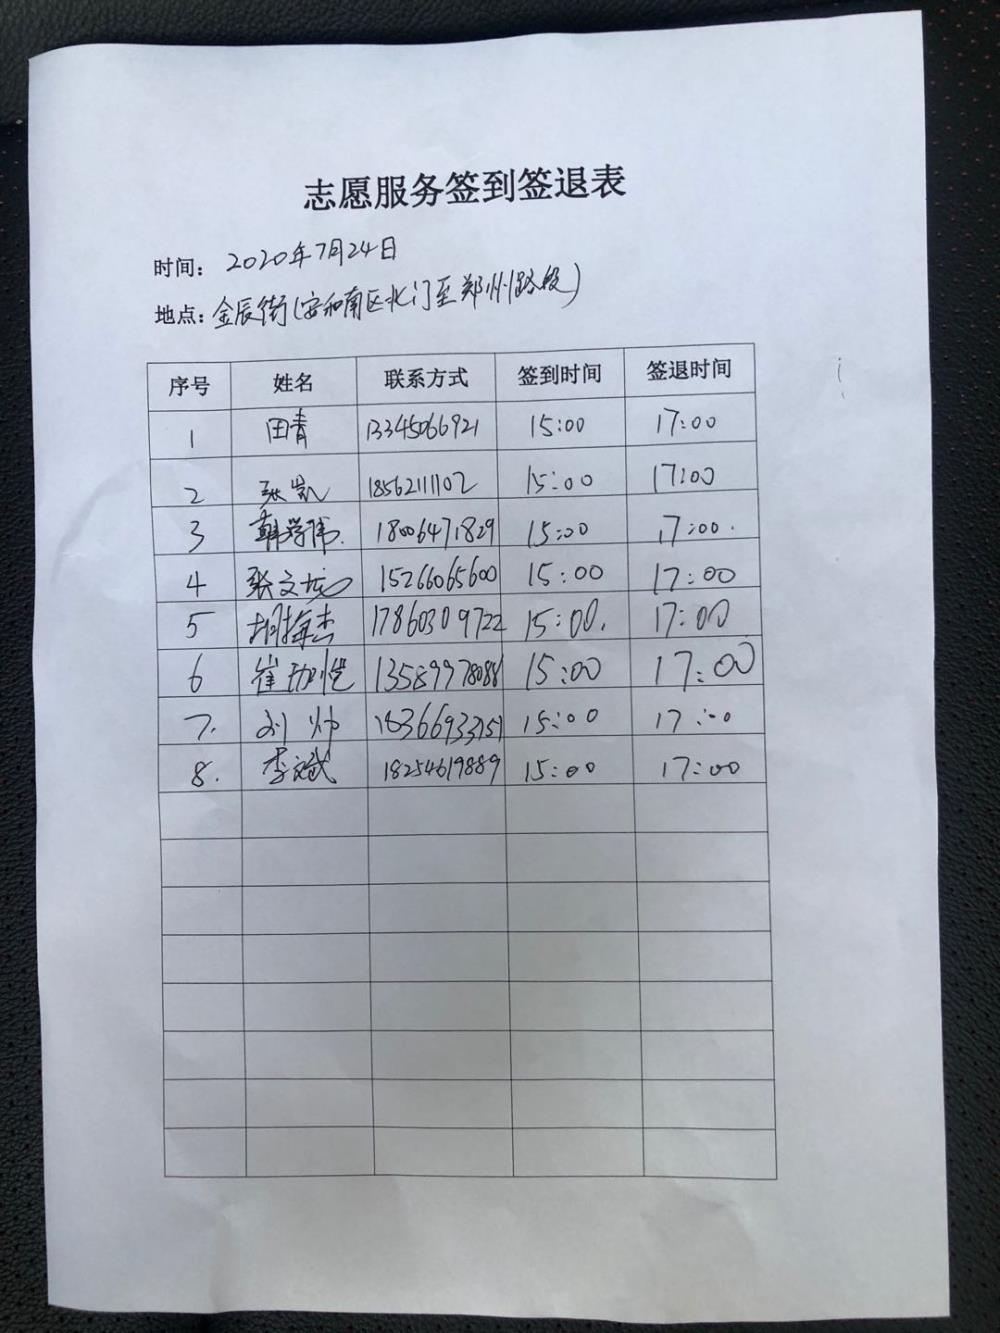 志愿服务签到签退表
时间: 2020年7月24日
地点: 金辰街(安和南区北门至郑州路段)
序号 姓名 联系方式 签到时间 签退时间
1 田青 13345066921 15:00 17:00
2 张凯 18562111102 15:00 17:00
3 韩学伟. 18006471829 15:00 17:00.
4 张文龙 15266065600 15:00 17:00
5 胡梅杰 17860309722 15:00. 17:00
6 崔 13589978088 15:00 17:00
7. 刘帅 18366933151 15:00 17:00
8. 李斌 18254619889 15:00 17:00